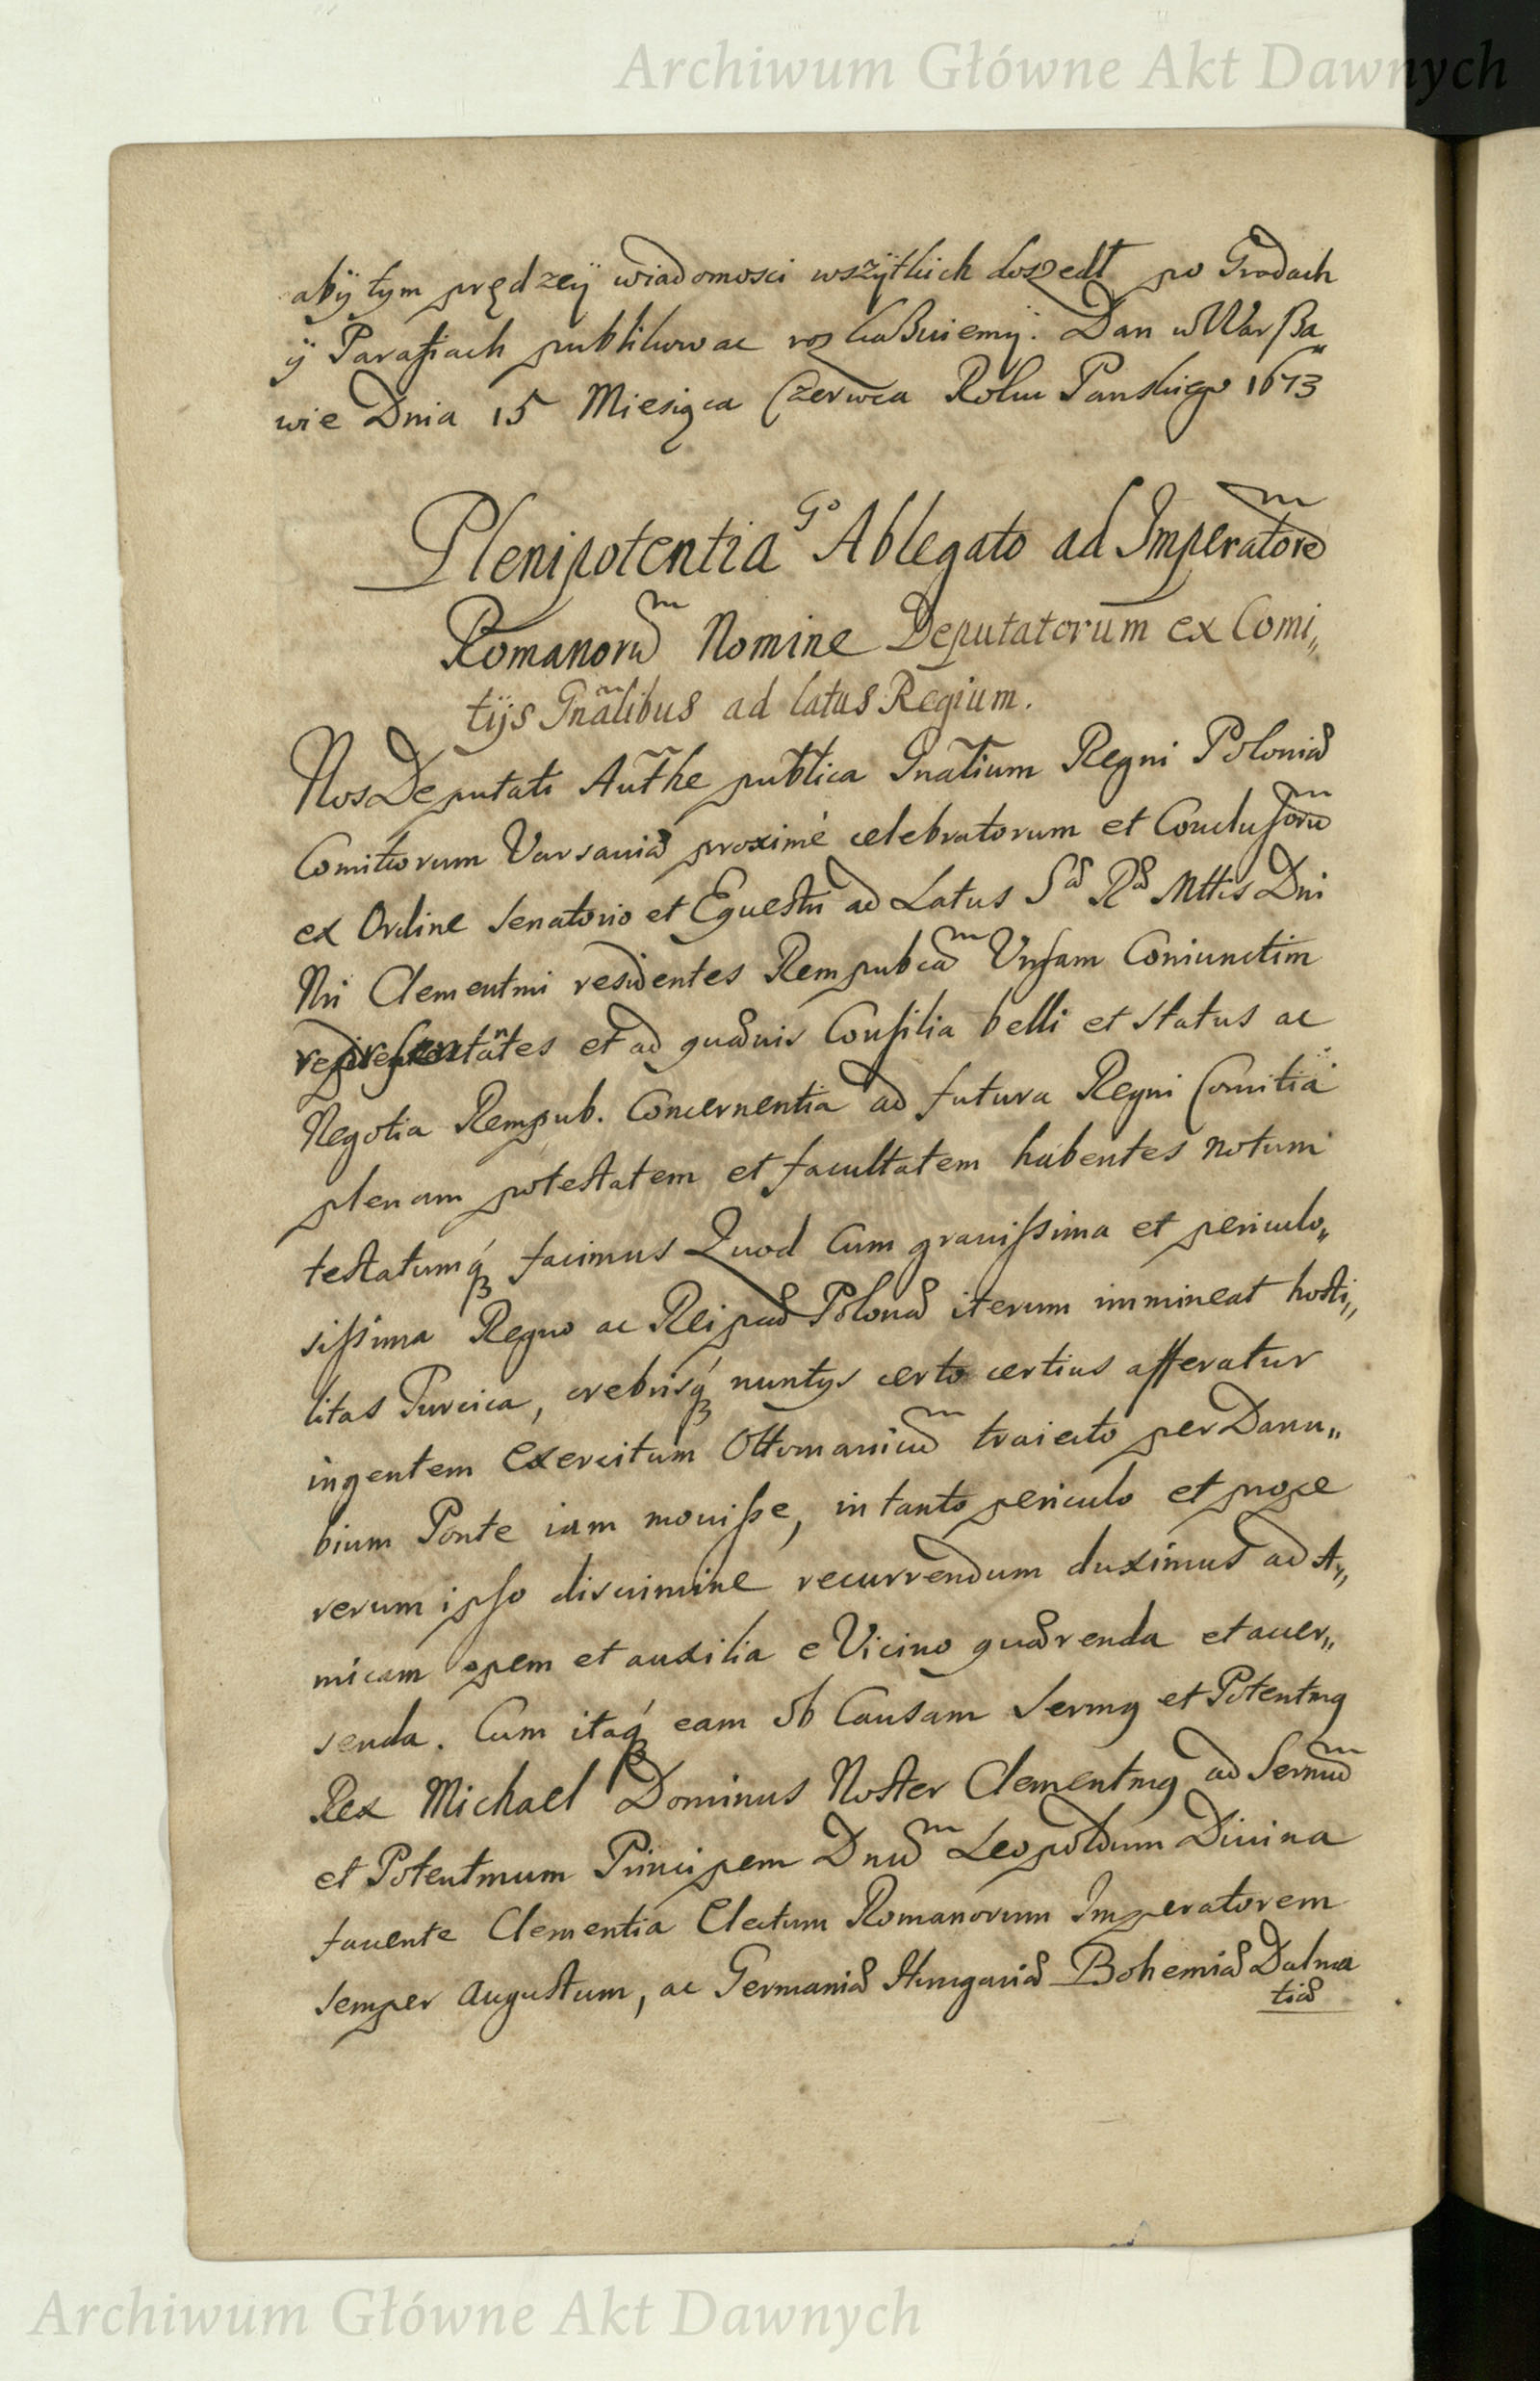 Archiwum Główne Akt Dawnych
abÿ tym prędzeÿ wiadomosci wszÿtkich doszedł po Grodach
ÿ Parafiach publikowac roskaßuiemÿ. Dan w Warßa„
wie Dnia 15 Miesiąca Czerwca Roku Panskiego 1673
Plenipotentia Gº Ablegato ad Imperatorem̅
Romanoru̅m Nomine Deputatorum ex Comi„
tijs Gnãlibus ad latus Regium.
Nos Deputati Auth̃e publica Gnãlium Regni Poloniæ
Comitiorum Varsaviæ proximè celebratorum et Conclusoru̅m
ex Ordine Senatorio et Equestri ad Latus Sæ Ræ Mttis Dni
Nri Clementmi residentes Rempubca̅m Vnsam Coniunctim
repræsentantes et ad quævis Consilia belli et status ac
Negotia Rempub. Concernentia ad futura Regni Comitia
plenam potestatem et facultatem habentes notum
testatumq́ facimus Quod Cum gravissima et periculo„
sissima Regno ac Reipcæ Polonæ iterum immineat hosti„
litas Turcica, crebrisq́ nuntys certo certius afferatur
ingentem Exercitum Ottomanicu̅m traiecto per Danu„
bium Ponte iam movisse, in tanto periculo et prope
rerum ipso discrimine recurrendum duximus ad A„
micam opem et auxilia e Vicino quærenda et acver„
senda. Cum itaq́ eam ob Causam Sermg et Potentmg
Rex Michael Dominus Noster Clementmg ad Sermu̅m
et Potentmum Principem Dnu̅m Leopoldum Divina
favente Clementia Electum Romanorum Imperatorem
semper Augustum, ac Germaniæ Hungariæ Bohemiæ Dalma
tiæ
Archiwum Główne Akt Dawnych